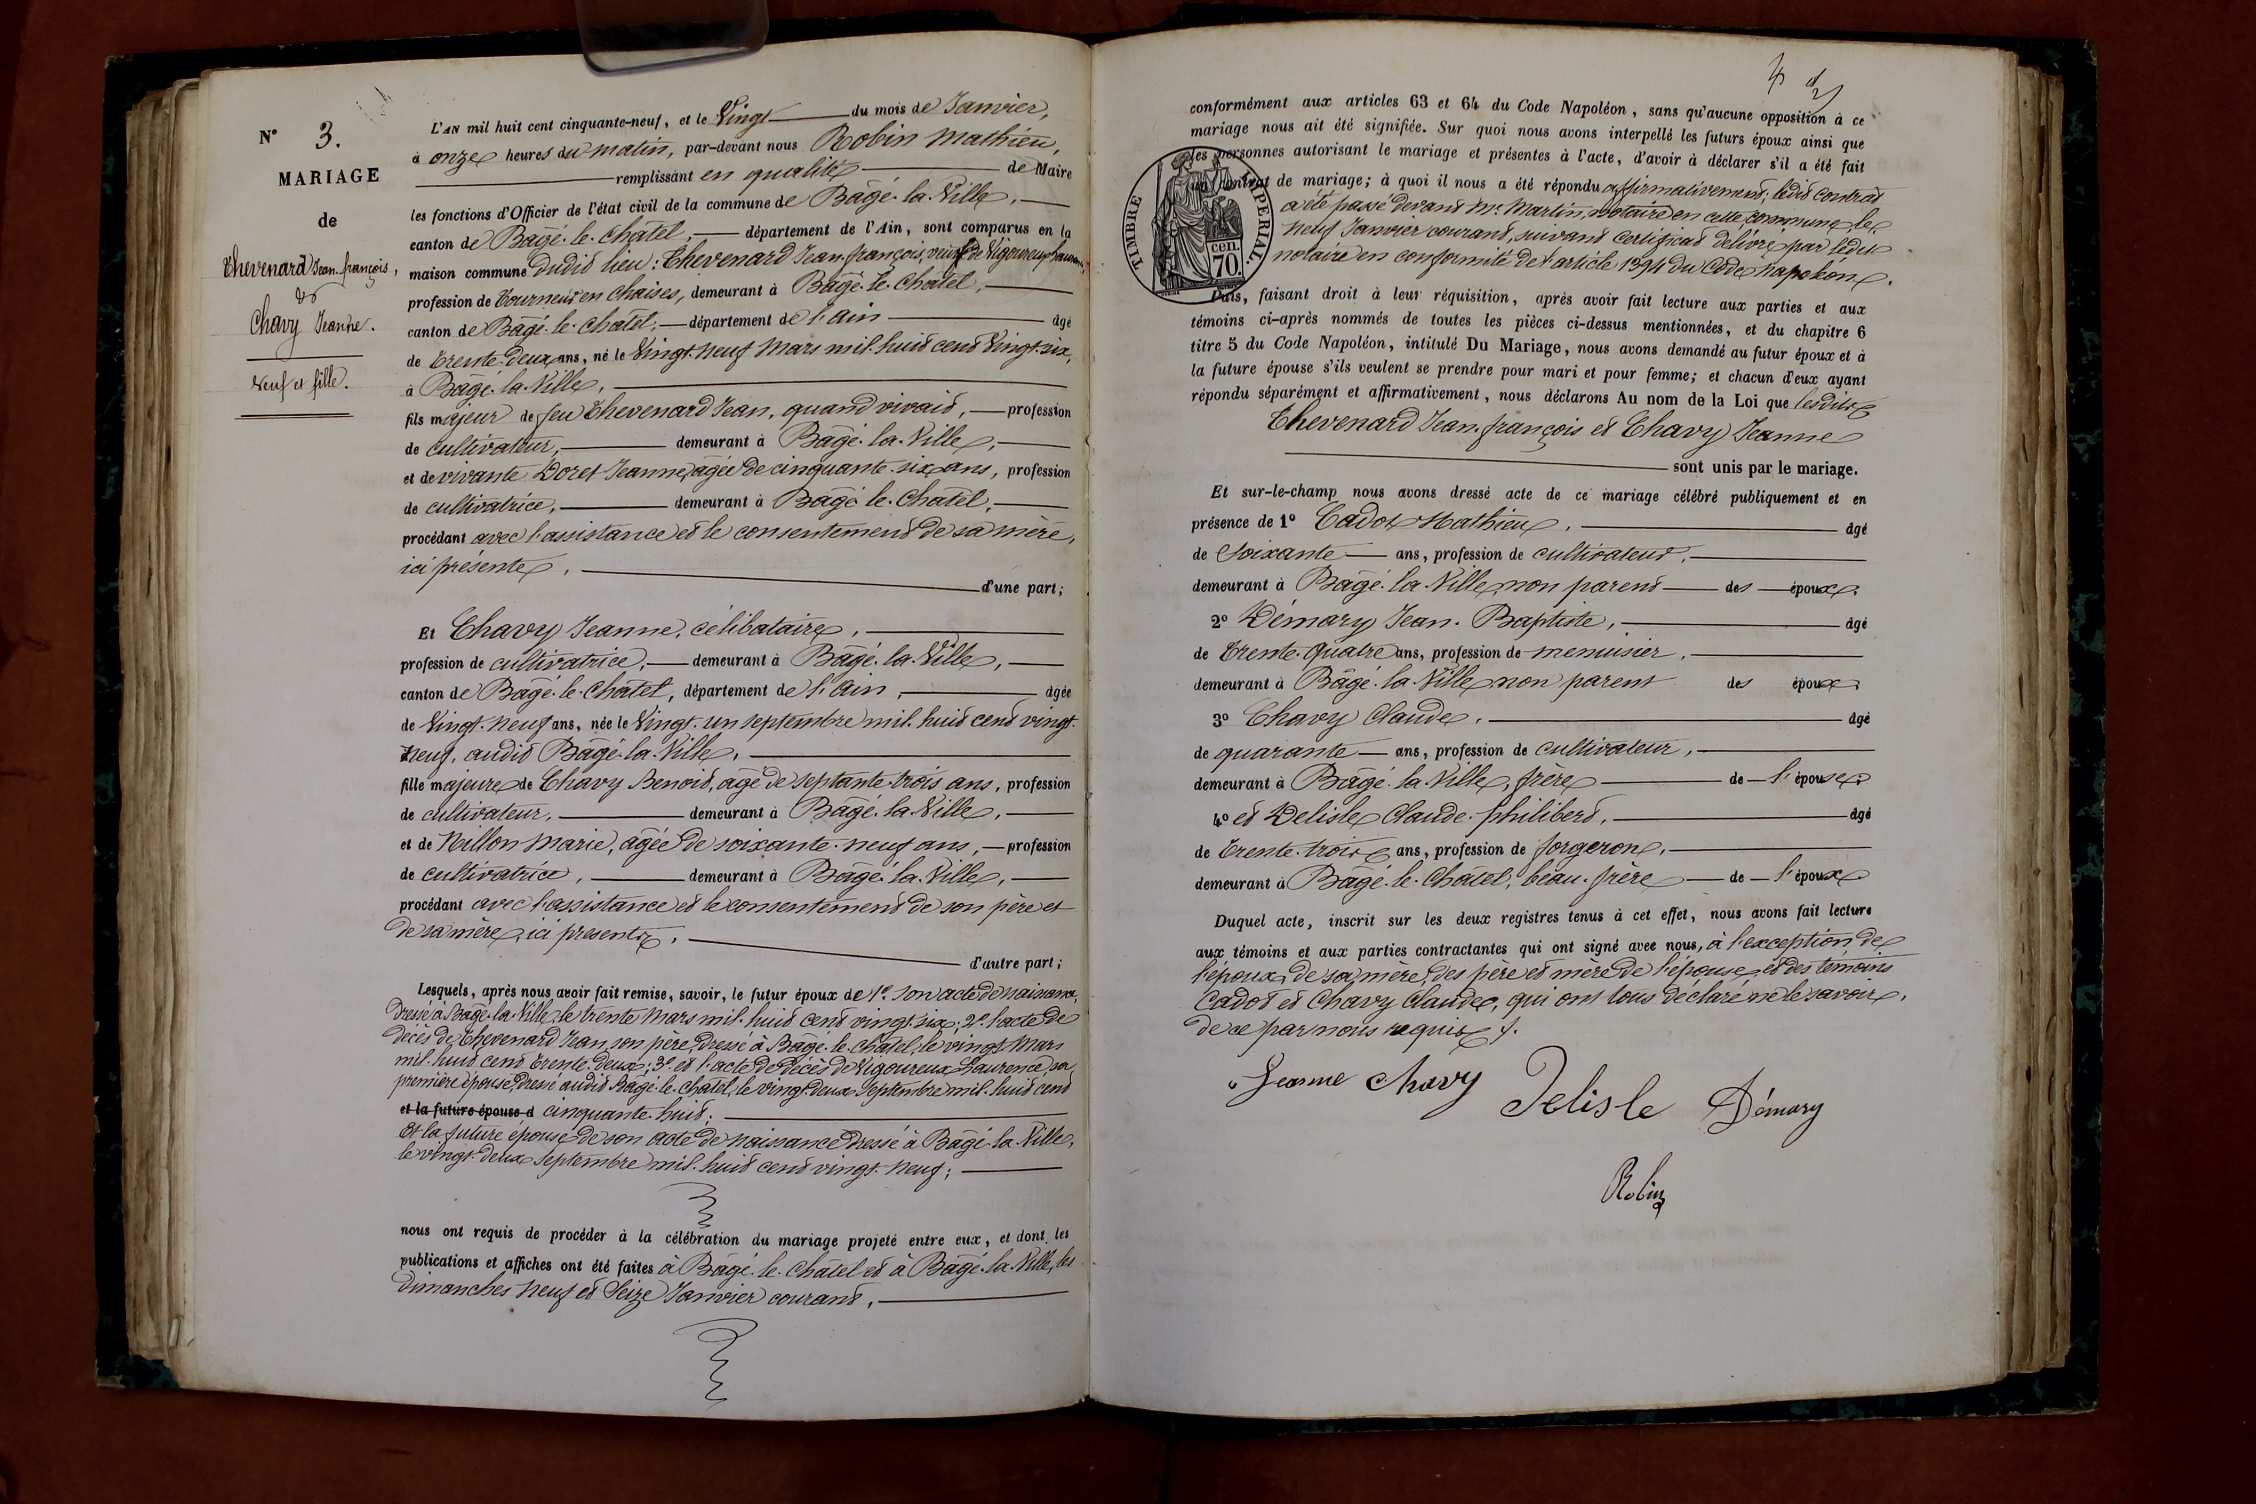 N° 3.
MARIAGE
de
Chevenard Jean-françois,
et
Chavy Jeanne.
veuf et fille.
L'AN mil huit cent cinquante-neuf, et le Vingt du mois de Janvier,
à onze heures du matin, par-devant nous Robin Mathieu,
remplissant en qualité de Maire
les fonctions d'Officier de l'état civil de la commune de Bâgé-la-Ville,
canton de Bâgé-le-Châtel, département de l'Ain, sont comparus en la
maison commune dudit lieu: Chevenard Jean-françois, veuf de Vigoureux Laurence,
profession de Tourneur en Chaises, demeurant à Bâgé-le-Châtel,
canton de Bâgé-le-Châtel, département de l'ain âgé
de Trente-deux ans, né le Vingt-neuf Mars mil-huit cent Vingt-six,
à Bâgé-la-Ville,
fils majeur de feu Chevenard Jean, quand vivait, profession
de cultivateur, demeurant à Bâgé-la-Ville,
et de vivante Doret Jeanne, âgée de cinquante-six ans, profession
de cultivatrice, demeurant à Bâgé-le-Châtel,
procédant avec l'assistance et le consentement de sa mère,
ici présente, d'une part;
Et Chavy Jeanne, célibataire,
profession de cultivatrice, demeurant à Bâgé-la-Ville,
canton de Bâgé-le-Châtel, département de l'Ain, âgée
de Vingt-neuf ans, née le Vingt-un septembre mil-huit cent vingt-
neuf, audit Bâgé-la-Ville,
fille majeure de Chavy Benoit, agé de septante-trois ans, profession
de cultivateur, demeurant à Bâgé-la-Ville,
et de Nillon Marie, âgée de soixante-neuf ans, profession
de cultivatrice, demeurant à Bâgé-la-Ville,
procédant avec l'assistance et le consentement de son père et
de sa mère, ici présents,
d'autre part;
Lesquels, après nous avoir fait remise, savoir, le futur époux de 1° son acte de naissance,
dressé à Bâgé-la-Ville, le trente Mars mil-huit cent vingt-six; 2° l'acte de
décès de Chevenard Jean, son père, dressé à Bâgé-le-châtel, le vingt Mars
mil-huit cent Trente-deux; 3° et l'acte de décès de Vigoureux Laurence, sa
première épouse, dressé audit Bâgé-le-châtel, le vingt-deux Septembre mil-huit cent
et la future épouse d cinquante-huit;
Et la future épouse de son acte de naissance dressé à Bâgé-la-Ville,
le vingt-deux septembre mil-huit cent vingt-neuf;
nous ont requis de procéder à la célébration du mariage projeté entre eux, et dont les
publications et affiches ont été faites à Bâgé-le-Châtel et à Bâgé-la-Ville, les
dimanches neuf et Seize Janvier courant,
conformément aux articles 63 et 64 du Code Napoléon, sans qu'aucune opposition à ce
mariage nous ait été signifiée. Sur quoi nous avons interpellé les futurs époux ainsi que
les personnes autorisant le mariage et présentes à l'acte, d'avoir à déclarer s'il a été fait
un contrat de mariage; à quoi il nous a été répondu affirmativement; ledit contrat
a été passé devant Me Martin, notaire en cette commune, le
neuf Janvier courant, suivant certificat délivré par ledit
notaire en conformité de l'article 1394 du Code napoléon.
TIMBRE IMPERIAL.
cen.
70.
Puis, faisant droit à leur réquisition, après avoir fait lecture aux parties et aux
témoins ci-après nommés de toutes les pièces ci-dessus mentionnées, et du chapitre 6
titre 5 du Code Napoléon, intitulé Du Mariage, nous avons demandé au futur époux et à
la future épouse s'ils veulent se prendre pour mari et pour femme; et chacun d'eux ayant
répondu séparément et affirmativement, nous déclarons Au nom de la Loi que lesdits
Chevenard Jean-françois et Chavy Jeanne
sont unis par le mariage.
Et sur-le-champ nous avons dressé acte de ce mariage célébré publiquement et en
présence de 1° Cadot Mathieu, âgé
de Soixante ans, profession de cultivateur,
demeurant à Bâgé-la-Ville, non parent des époux.
2° Démary Jean-Baptiste, âgé
de Trente-Quatre ans, profession de menuisier,
demeurant à Bâgé-la-Ville non parent des époux.
3° Chavy Claude, âgé
de quarante ans, profession de cultivateur,
demeurant à Bâgé-la-Ville, frère de l'épouse.
4° et Delisle Claude-philibert, âgé
de Trente-trois ans, profession de forgeron,
demeurant à Bâgé-le-Châtel, beau-frère de l'époux.
Duquel acte, inscrit sur les deux registres tenus à cet effet, nous avons fait lecture
aux témoins et aux parties contractantes qui ont signé avec nous, à l'exception de
l'époux, de sa mère, des père et mère de l'épouse, et des témoins
Cadot et Chavy Claude, qui ont tous déclaré ne le savoir,
de ce par nous requis.
Jeanne Chavy Delisle Démary
Robin